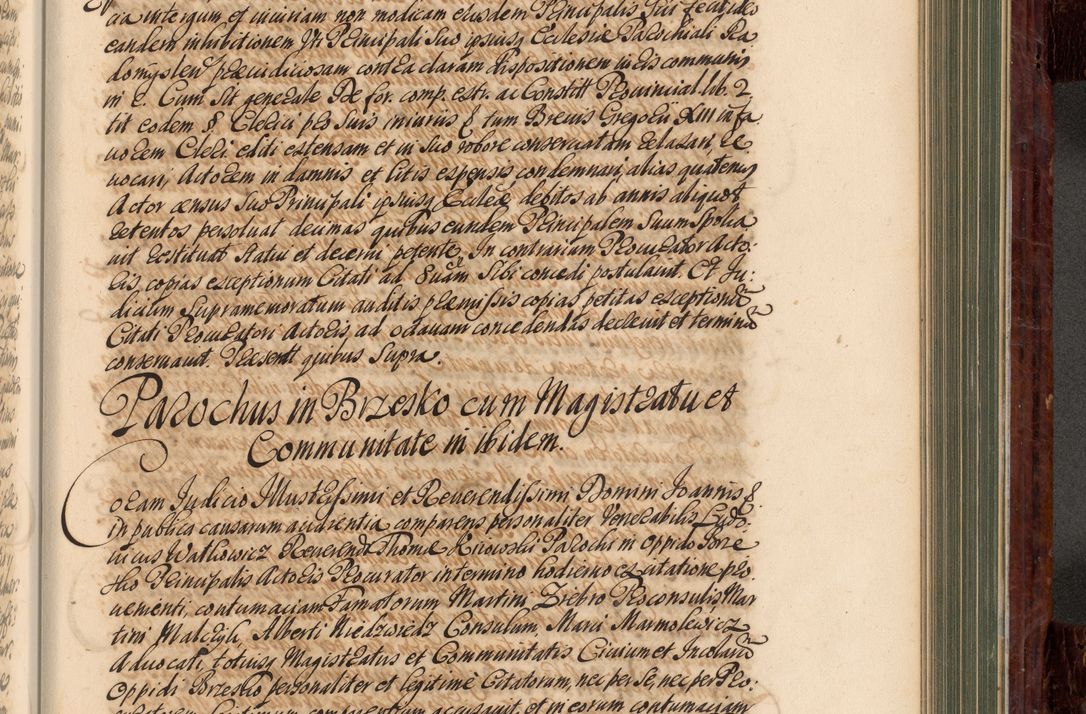 cia integrum et iniuriam non modicam eiusdem Principalis
eandem inhibitionem Principali Suo ipsiusq Ecclesiæ Parochiali Ra
domyslen præiudiciosam contra claram dispositionem iuris communis
in c. Cum Sit generale De for. comp. extr. ac Constitt Provincial lib. 2
tit eodem § Clerici pro Suis iniuriis § tum Brevis Gregorii XIII in fa
vorem Cleri editi extensam et in Suo robore conservatam relaxari, re
vocari, Actorem in damnis et litis expensis condemnari, alias quatenus
Actor census Suo Principali ipsiusq Ecclæ debitos ab annis aliquot
retentos persolvat decimas quibus eundem Principalem Suum Spolia
vit restituat Statui et decerni petente. In contrarium Procurator Acto:
ris, copias exceptionum Citati ad 8uam Sibi concedi postulavit. Et Ju:
dicium Supramemoratum auditis præmissis copias petitas exceptionu
Citati Procuratori Actoris ad octavam concedendas decrevit et terminu
conservavit. Præsent quibus Supra.
Parochus in Brzesko cum Magistratu et
Communitate in ibidem.
Coram Judicio Illustrissimi et Reverendissimi Domini Joannis §.
in publica causarum audientia comparens personaliter Venerabilis Ludo
vicus Watkowicz Reverendi Thomæ Kiowski Parochi in Oppido Brze
sko Principalis Actoris Procurator in termino hodierno ex citatione pro
venienti, contumaciam Famatorum Martini Ziebro Proconsulis, Mar
tini Malczyk, Alberti Niedzwiedz Consulum, Marci Marmolewicz
Advocati, totiusq Magistratus et Communitatis Civium et Incolaru
Oppidi Brzesko personaliter et legitime Citatorum, nec per Se, nec per Pro:
curatorem legitimum comparentium accusavit, et in eorum contumaciam